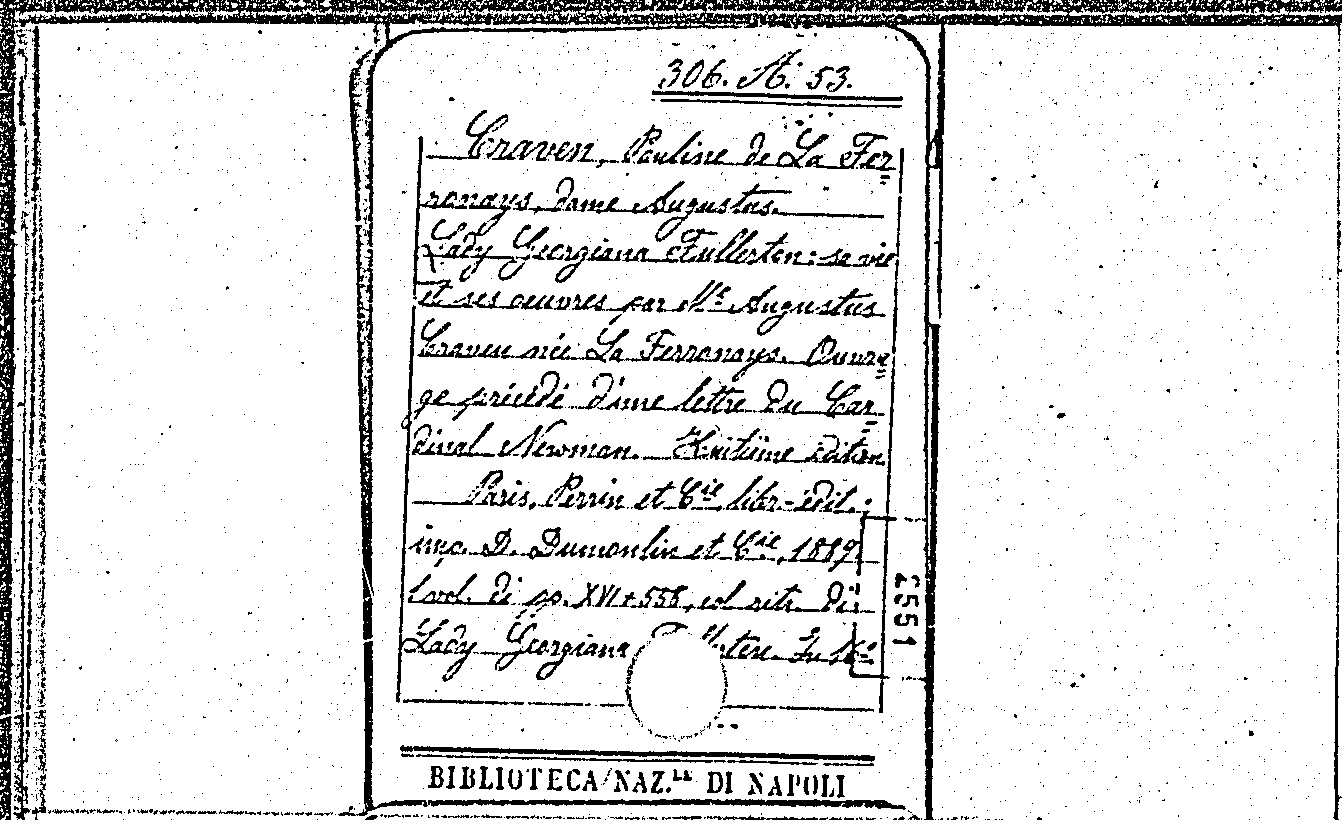 306. A. 53.
Craven, Pauline de La Fer=
ronays, dame Augustus.
Lady Georgiana Fullerton: sa vie
et ses oeuvres par Mᵉ Augustus
Craven née La Ferronays. Ouvra=
ge précédé d'une lettre du Car=
dinal Newman. Huitième édition
Paris, Perrin et Cie libr.-édit.;
imp. D. Dumoulin et Cie, 1889
1 vol. di pp. XVI+558, col ritr. di
Lady Georgiana In
2551
BIBLIOTECA NAZ.LE DI NAPOLI